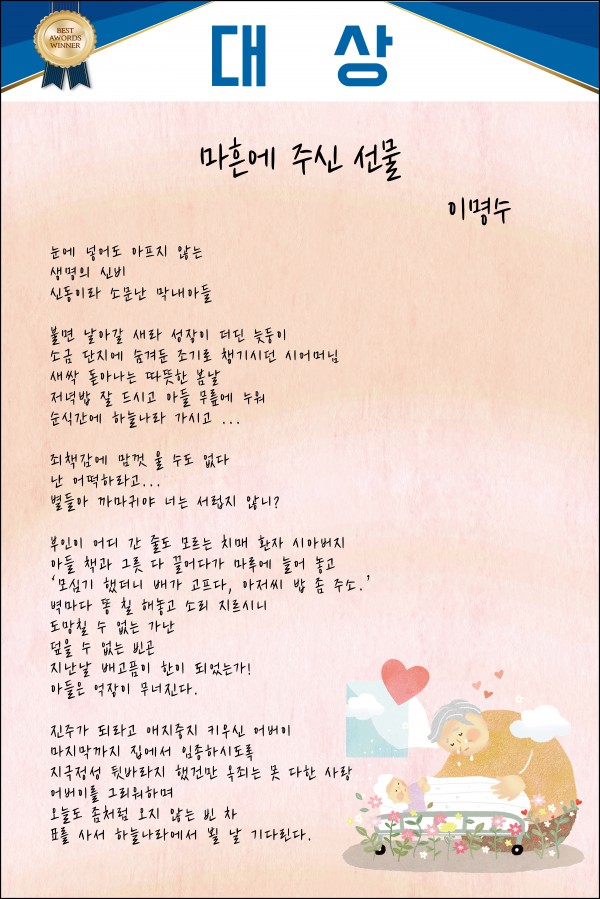 BEST
AWORDS
WINNER
대 상
마흔에 주신 선물
이명수
눈에 넣어도 아프지 않는
생명의 신비
신동이라 소문난 막내아들
불면 날아갈 새라 성장이 더딘 늦둥이
소금 단지에 숨겨둔 조기로 챙기시던 시어머님
새싹 돋아나는 따뜻한 봄날
저녁밥 잘 드시고 아들 무릎에 누워
순식간에 하늘나라 가시고 ...
죄책감에 맘껏 울 수도 없다
난 어떡하라고...
별들아 까마귀야 너는 서럽지 않니?
부인이 어디 간 줄도 모르는 치매 환자 시아버지
아들 책과 그릇 다 끌어다가 마루에 늘어 놓고
‘모심기 했더니 배가 고프다, 아저씨 밥 좀 주소.’
벽마다 똥 칠 해놓고 소리 지르시니
도망칠 수 없는 가난
덮을 수 없는 빈곤
지난날 배고픔이 한이 되었는가!
아들은 억장이 무너진다.
진주가 되라고 애지중지 키우신 어버이
마지막까지 집에서 임종하시도록
지극정성 뒷바라지 했건만 옥죄는 못 다한 사랑
어버이를 그리워하며
오늘도 좀처럼 오지 않는 빈 차
표를 사서 하늘나라에서 뵐 날 기다린다.